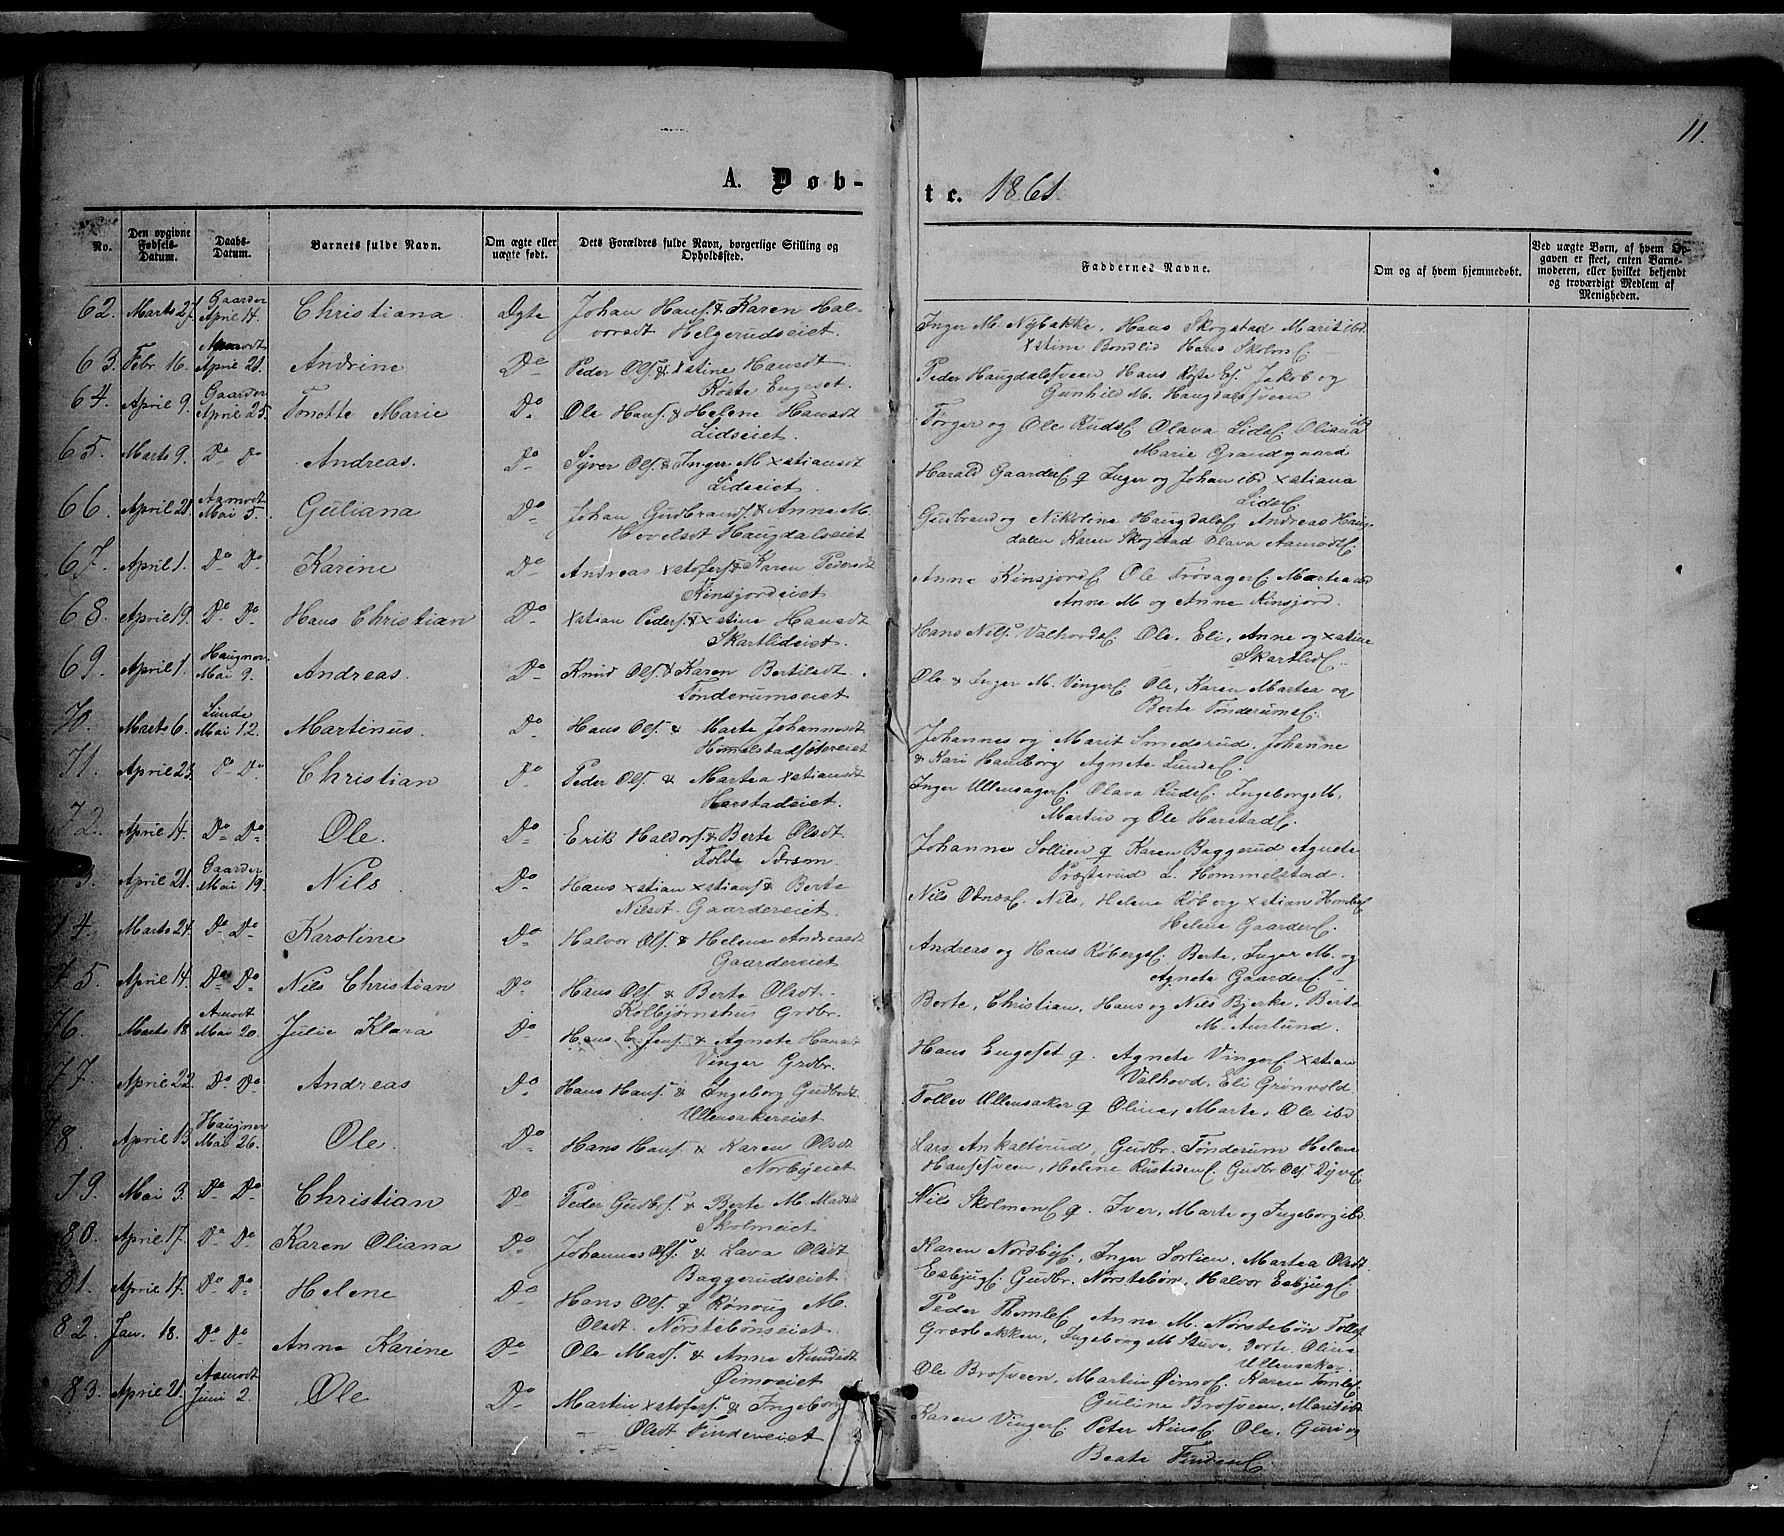 11.
A. Døb-
te. 1861.
No.
Den opgivne Fødsels-Datum.
Daabs-Datum.
Barnets fulde Navn.
Om ægte eller uægte født.
Dets Forældres fulde Navn, borgerlige Stilling og Opholdssted.
Faddernes Navne.
Om og af hvem hjemmedøbt.
Ved uægte Børn, af hvem Opgaven er skeet, enten Barnemoderen, eller hvilket bekjendt og troværdigt Medlem af Menigheden.
62. Marts 27. Gaarder April 14. Christiana Ægte Johan Hans. & Karen Hal-
vorsdt Helgerudseiet.
Inger M. Nybakke, Hans Skogstad Marit ibd
Xstine Bondlid Hans Skolms
63. Febr. 16. Aamodt April 21. Andrine Do Peder Ols. & Xstine Hansdt
Røste Engeset.
Peder Haugdalssveen Hans Røste Es. Jakob og
Gunhild M. Haugdalssveen
64. April 9. Gaarder April 25. Tonette Marie Do Ole Hans. & Helene Hansdt
Lidseiet.
Torger og Ole Ruds Olava Lids Oliana ibd
Marie Grandgaard
65. Marts 9. Do Do Andreas. Do Syver Ols. & Inger M. Xstiansdt
Lidseiet.
Harald Gaarder q Inger og Johan ibd Xstiana
Lids
66. April 21. Aamodt Mai 5. Guliana Do Johan Gudbrands. & Anne M.
Hovelsdt Haugdalseiet
Gudbrand og Nikoline Haugdals Andreas Haug-
dalen Karen Skogstad Olava Aamodts
67. April 1. Do Do Karine Do Andreas Xstofers. & Karen Pedersdt
Kinsjordeiet
Anne Kinsjord Ole Frøsager Martea ibd
Anne M og Anne Kinsjord.
68. April 19. Do Do Hans Christian Do Xstian Peders. & Xstine Hansdt
Skartlideiet.
Hans Nils. Valhovds Ole, Eli, Anne og Xstine
Skartlid
69. April 1. Haugner Mai 9. Andreas. Do Knud Ols. & Karen Bertilsdt.
Tønderumseiet
Ole & Inger M. Vinger Ole, Karen Martea og
Berte Tønderums.
70. Marts 6. Lunde Mai 12. Martinus. Do Hans Ols. & Marte Johannesdt
Hommelstadsetereiet
Johannes og Marit Smedsrud. Johanne
& Kari Handborg Agnete Lunde.
71. April 23. Do Do Christian Do Peder Ols. & Martea Xstiansdt
Harstadeiet.
Inger Ullensager Olava Ruds. Ingeborg M,
Martin og Ole Harstad.
72. April 14. Do Do Ole. Do Erik Haldors. & Berte Olsdt
Tolde
Johannes Sollien q Karen Baggerud Agnete
Præsterud L. Hommelstad.
73. April 21. Gaarder Mai 19. Nils. Do Hans Xstian Xstians. & Berte
Nilsdt. Gaardereiet.
Nils Nils, Helene Røberg Xstian
Helene Gaarder.
74. Marts 24. Do Do Karoline Do Halvor Ols. & Helene Andreasdt
Gaardereiet
Andreas og Hans Røbergs Berte, Inger M. og
Agnete Gaarder
75. April 14. Do Do Nils Christian Do Hans Ols. & Berte Olsdt.
Kolbjørnshus Grdbr.
Berte, Christian, Hans og Nils Bjerke, Berte
M. Aurlund.
76. Marts 18. Amodt Mai 20. Julie Klara Do Hans & Agnete Hansdt
Vinger Grdbr.
Hans Engeset q. Agnete Vinger Xstian
Valhovd. Eli Grønvold
77. April 22. Do Do Andreas Do Hans Hans. & Ingeborg Gudbrdt
Ullensakereiet
Tollev Ullensaker q Oline, Marte, Ole ibd
78. April 13. Haugner Mai 26. Ole. Do Hans Hans. & Karen Olsdt
Norbyeiet
Lars Ankalterud, Gudbr. Tønderum Helene
Hansessveen, Helene Rusteden Gudbr Ols. Dyve
79. Mai 3. Do Do Christian Do Peder Gudbrs. & Berte M. Madsdt
Skolmeiet
Nils Skolmen q. Iver, Marte og Ingeborg ibd.
80. April 17. Do Do Karen Oliana Do Johannes Ols. & Lava Olsdt
Baggerudseiet
Karen Nordby, Inger Sorlien, Martea Olsdt
Esbjug Gudbr. Nørstebøn, Halvor Esbjug
81. April 14. Do Do Helene Do Hans Ols. & Rønoug M.
Olsdt. Nørstebønseiet.
Peder Thomle Anne M. Nørstebøn Tollef
Græsbakken, Ingeborg M. Stuve. Dorte. Oline
Ullensaker.
82. Jan. 18. Do Do Anne Karine Do Ole Mads. & Anne Knudsdt
Øimoeiet
Ole Brosveen, Martin Karen Tomle
Guline Brosveen, Marit ibd
83. April 21. Aamodt Juni 2. Ole Do Martin Xstofers. & Ingeborg
Olsdt Findeneiet
Karen Vinger. Peter Kins Ole, Guri og
Beate Finden